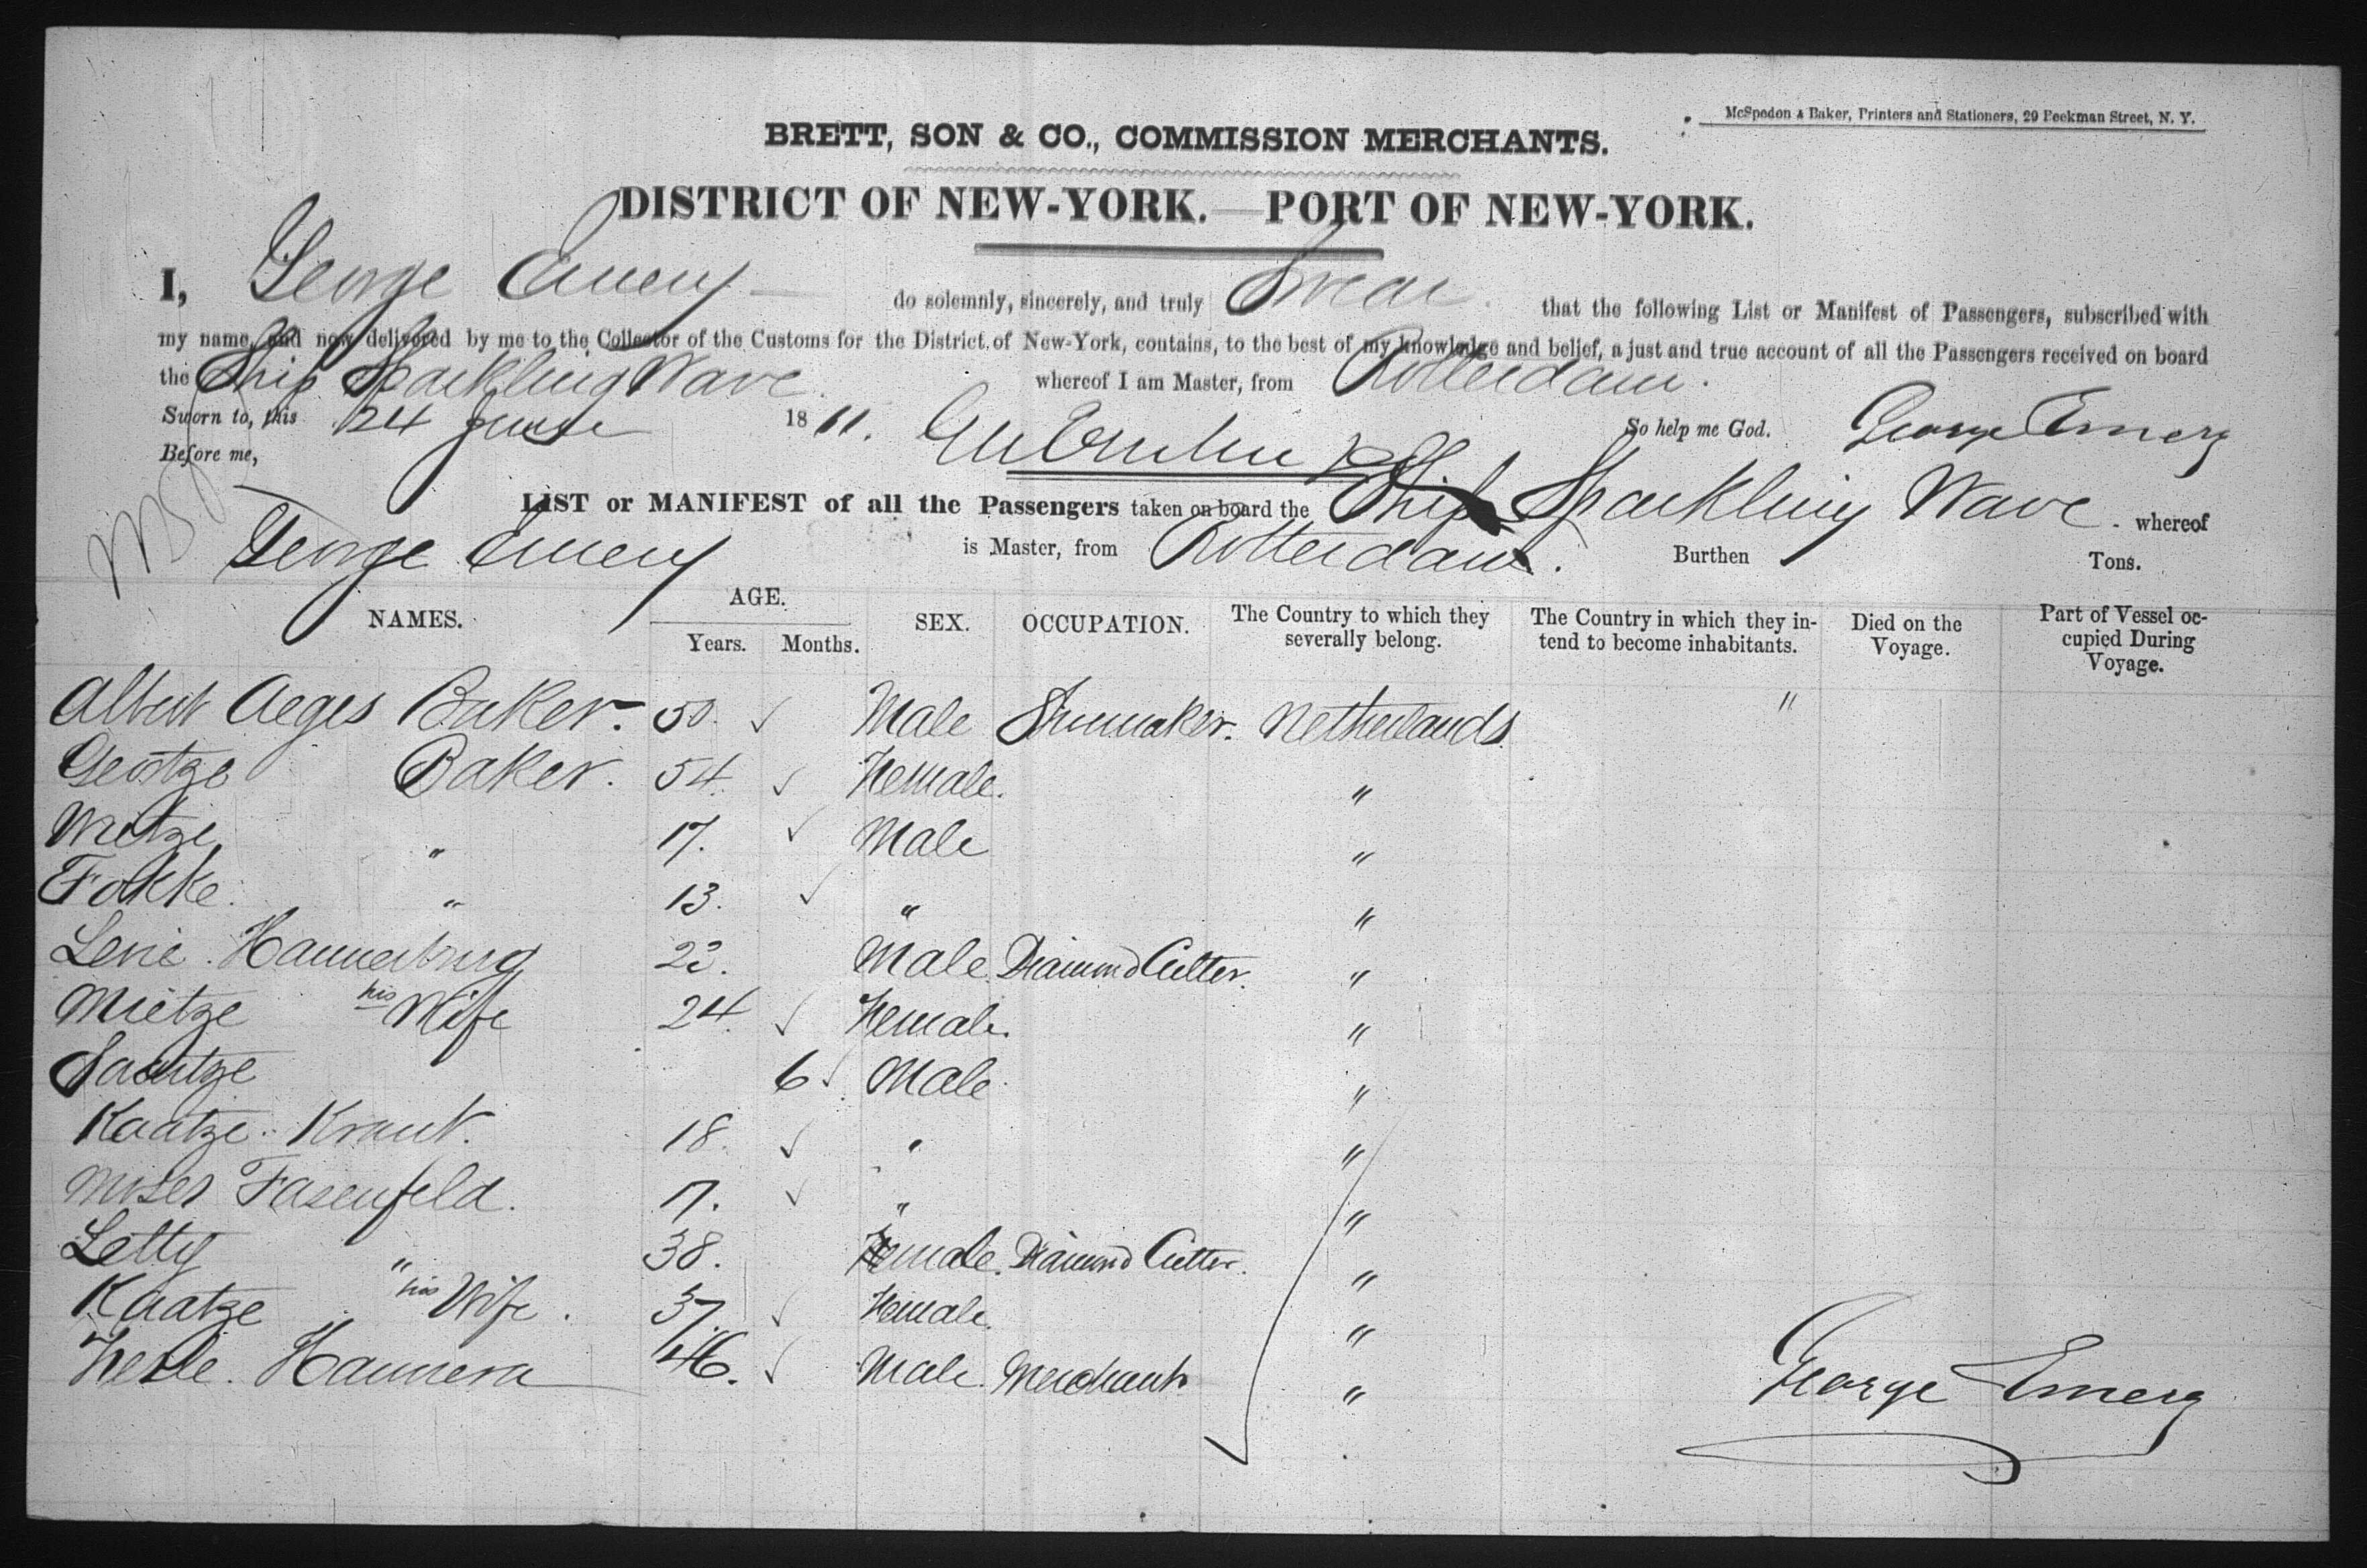 McSpedon & Baker, Printers and Stationers, 29 Beekman Street, N. Y.
BRETT, SON & CO., COMMISSION MERCHANTS.
DISTRICT OF NEW-YORK. PORT OF NEW-YORK.
I, George Emery do solemnly, sincerely, and truly Swear that the following List or Manifest of Passengers, subscribed with
my name, and now delivered by me to the Collector of the Customs for the District of New-York, contains, to the best of my knowledge and belief, a just and true account of all the Passengers received on board
the Ship Sparkling Wave whereof I am Master, from Rotterdam.
Sworn to, this 24 June 1861. So help me God. George Emery
Before me,
LIST or MANIFEST of all the Passengers taken on board the Ship Sparkling Wave. whereof
George Emery is Master, from Rotterdam. Burthen Tons.
NAMES. AGE. Years. Months. SEX. OCCUPATION. The Country to which they severally belong. The Country in which they intend to become inhabitants. Died on the Voyage. Part of Vessel occupied During Voyage.
Albert Aeges Baker. 50. Male Shumaker. Netherlands "
Geertze Baker. 54. Female. "
Wietze " 17. Male "
Fokke. " 13. " "
Levie. 23. Male Diamond Cutter. "
Mietze his Wife 24. Female. "
6 Male "
Kaatze. 18. " "
Moses Fasenfeld. 17. " "
Letty " 38. Female. Diamond Cutter. "
Kaatze his Wife. 37. Female. "
46. Male. Merchant. "
George Emery